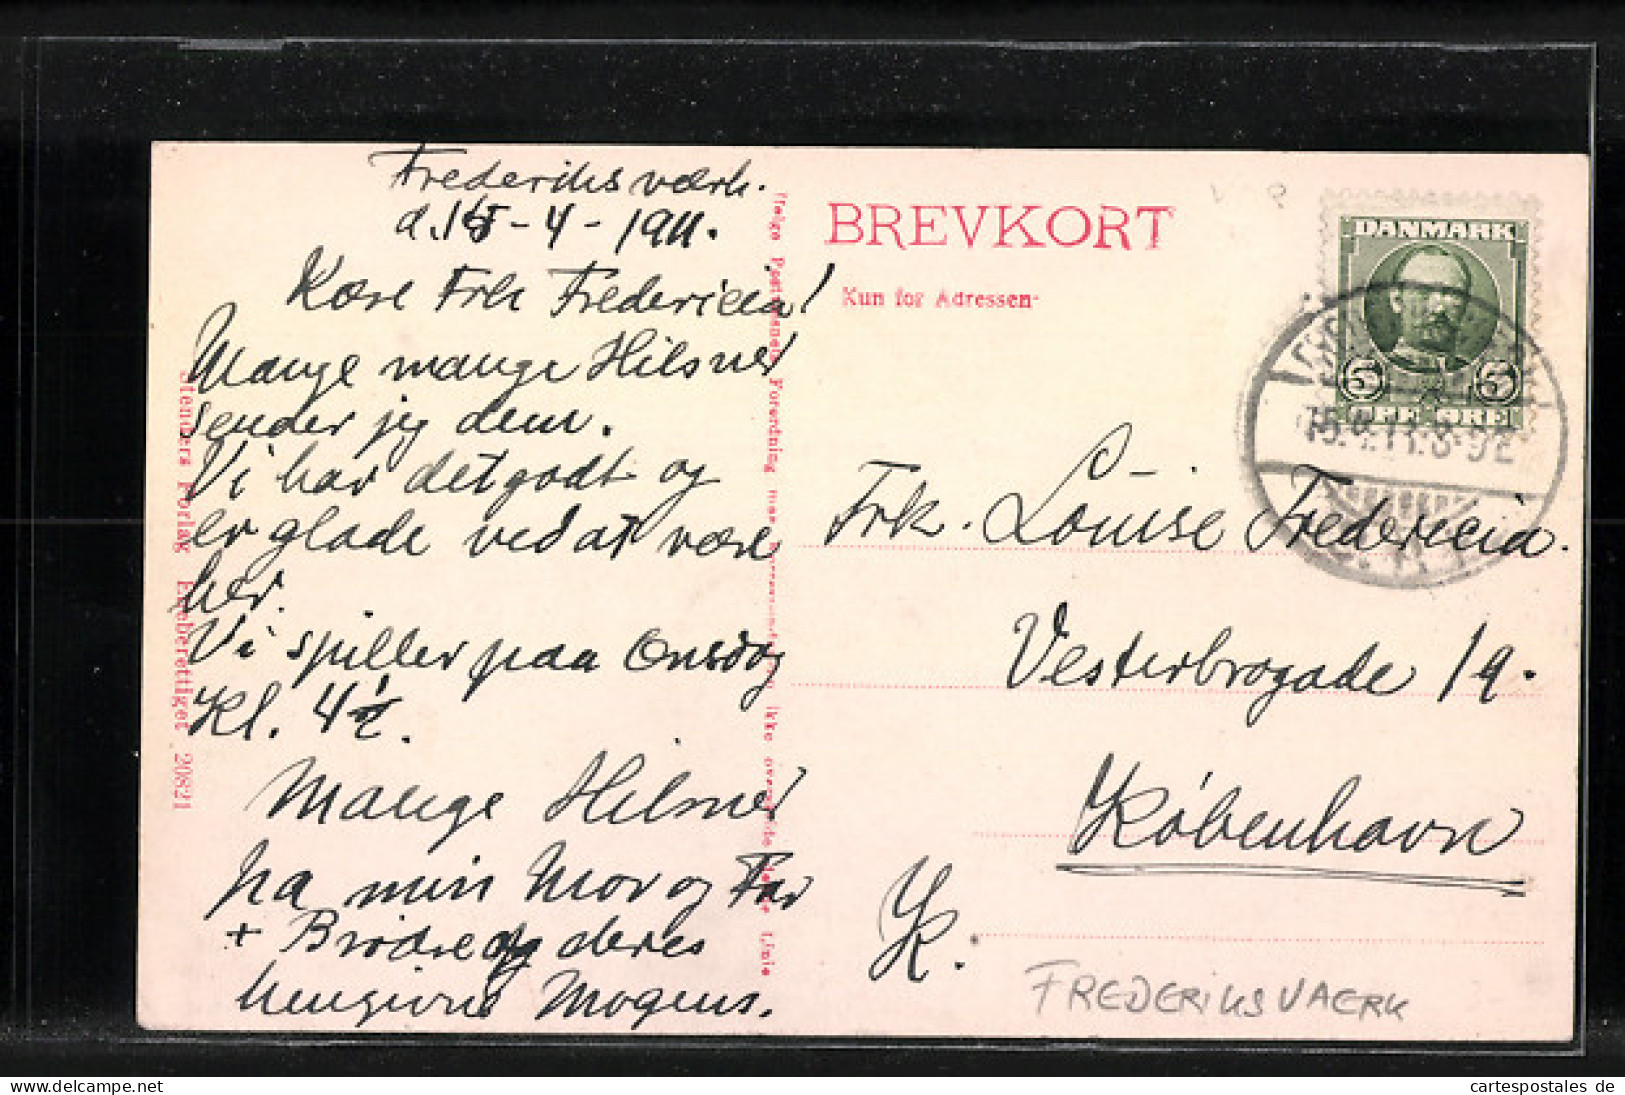 Frederiksværk.
d. 15-4-1911.
Kære Frk Fredericia!
Mange mange Hilsner
sender jeg dem.
Vi har det godt og
er glade ved at være
her.
Vi spiller paa Onsdag
Kl. 4½.
Mange Hilsner
fra min Mor og Far
+ Brødre og deres
hengivne Mogens.
Stenders Forlag Eneberettiget 20821
Ifølge Postvæsenets Forordning maa ikke overskride denne Linie
BREVKORT
Kun for Adressen
DANMARK
5 5
ØRE ØRE
15.4.11.8-9E
Frk. Louise Fredericia.
Vesterbrogade 19.
København
K.
FREDERIKSVAERK
Delcampe.net
cartespostales de